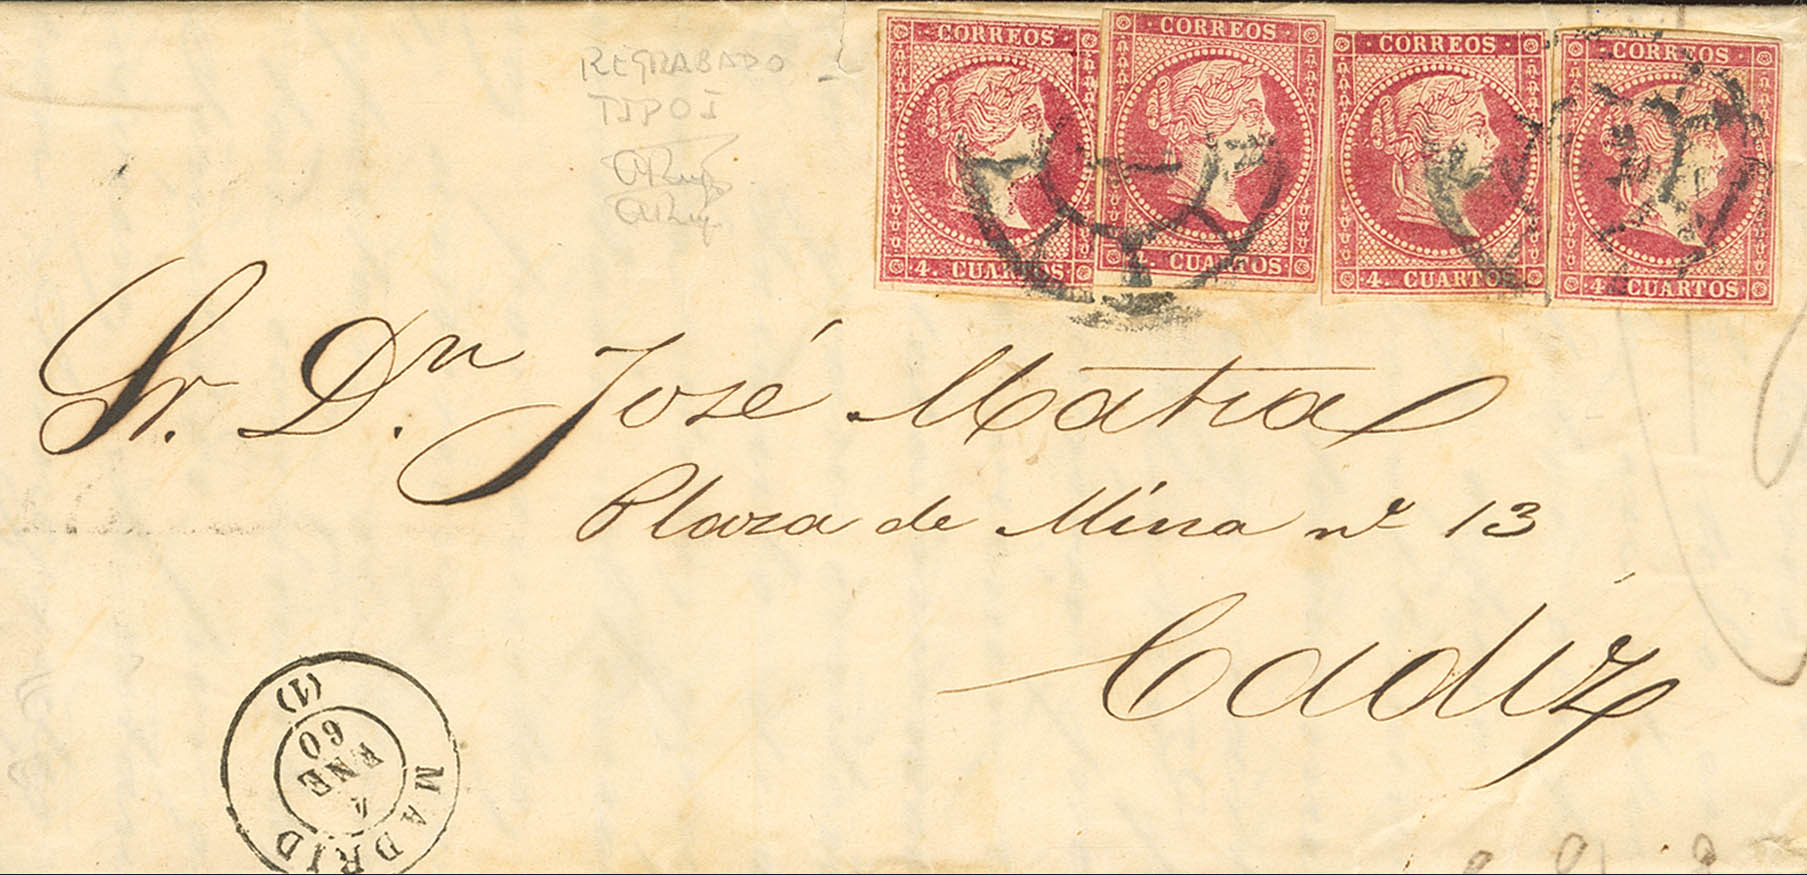 REGRABADO
TIPO I
CORREOS CORREOS CORREOS CORREOS
4. CUARTOS 4. CUARTOS 4. CUARTOS 4. CUARTOS
Sr. Dn. José Matia
Plaza de Mina nº 13
Cadiz
MADRID
4
ENE
60
(1)